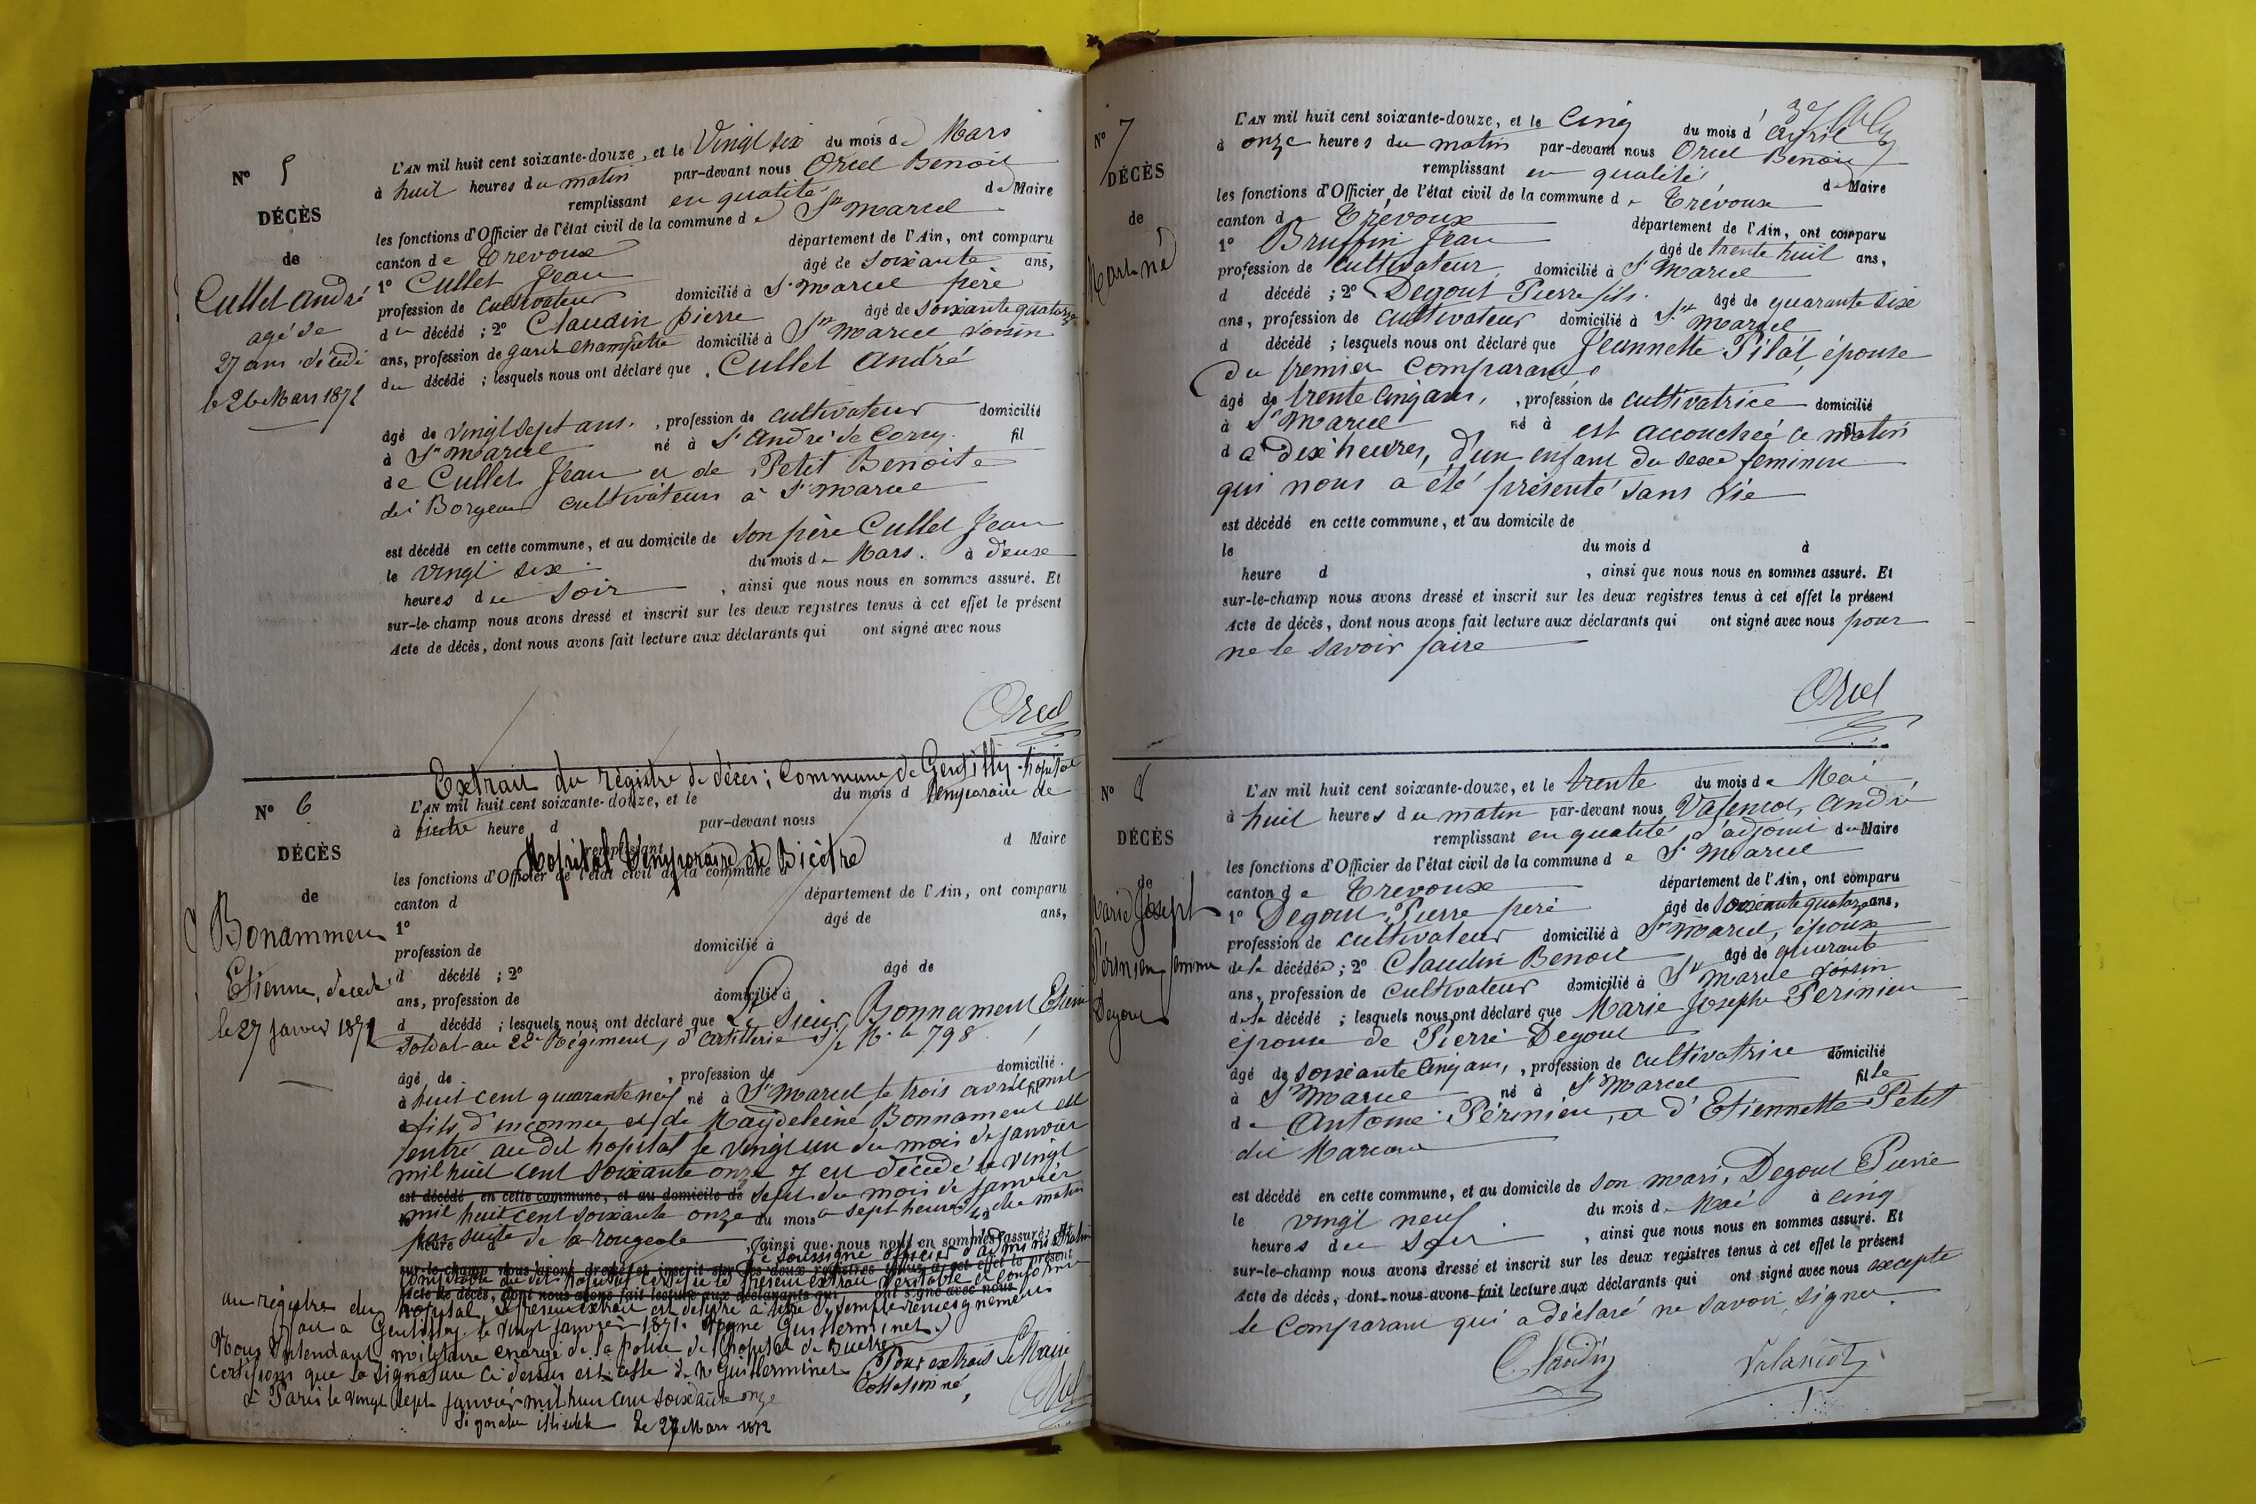 N° 5
DÉCÈS
de
Cullet André
agé de
27 ans décédé
le 26 Mars 1872
L'AN mil huit cent soixante-douze, et le Vingt six du mois de Mars
à huit heures du matin par-devant nous Orcel Benoit
remplissant en qualité de Maire
les fonctions d'Officier de l'état civil de la commune de St Marcel
canton de Trevoux département de l'Ain, ont comparu
1° Cullet Jean âgé de soixante ans,
profession de cultivateur domicilié à St Marcel père
du décédé ; 2° Claudin pierre âgé de soixante quatorze
ans, profession de garde champêtre domicilié à St Marcel voisin
du décédé ; lesquels nous ont déclaré que Cullet André
âgé de vingt sept ans , profession de cultivateur domicilié
à St Marcel né à St André de Corcy fil
de Cullet Jean et de Petit Benoite
cultivateurs à St Marcel
est décédé en cette commune, et au domicile de son père Cullet Jean
le vingt six du mois de Mars à deux
heures du soir , ainsi que nous nous en sommes assuré. Et
sur-le-champ nous avons dressé et inscrit sur les deux registres tenus à cet effet le présent
Acte de décès, dont nous avons fait lecture aux déclarants qui ont signé avec nous
Orcel
Extrait du régistre de décès ; Commune de Gentilly hopital
N° 6
DÉCÈS
de
Bonammen
Etienne, décédé
le 27 janvier 1871
L'AN mil huit cent soixante-douze, et le du mois d temporaire de
à bicetre heure d par-devant nous
remplissant d Maire
Hopital temporaire de Bicêtre
les fonctions d'Officier de l'état civil de la commune d
canton d département de l'Ain, ont comparu
1° âgé de ans,
profession de domicilié à
d décédé ; 2° âgé de
ans, profession de domicilié à
d décédé ; lesquels nous ont déclaré que Le Sieur Bonnament Etienne
Soldat au 22e Régiment d'artillerie 798
âgé de , profession de domicilié
à huit cent quarante neuf né à St Marcel le trois avril mil fil
fils d'inconnu et de Magdeleine Bonnament est
entré au dit hopital le vingt un du mois de janvier
mil huit cent soixante onze y est décédé le vingt
est décédé en cette commune, et au domicile de sept du mois de janvier
mil huit cent soixante onze du mois a sept heures du matin
par suite de la rougeole , ainsi que nous nous en sommes assuré. Et
Je soussigné officier d'administration
sur-le-champ nous avons dressé et inscrit sur les deux registres tenus à cet effet le présent
comptable du dit hopital certifie le présent extrait véritable et conforme
Acte de décès, dont nous avons fait lecture aux déclarants qui ont signé avec nous
au régistre du hopital, le présent extrait est délivré à titre de simple renseignement
fait a Gentilly le vingt janvier 1871. Signé Guillerminet
Nous intendant militaire chargé de la police de l'hopital de
certifions que la signature ci dessus est celle de Mr Guillerminet
à Paris le vingt sept janvier mil huit cent soixante onze
Pour extrait Le Maire
Orcel
le 27 Mars 1872
N° 7
DÉCÈS
de
Mort né
L'AN mil huit cent soixante-douze, et le Cinq du mois d'avril
à onze heures du matin par-devant nous Orcel Benoit
remplissant en qualité de Maire
les fonctions d'Officier de l'état civil de la commune de Trévoux
canton de Trévoux département de l'Ain, ont comparu
1° Bruffin Jean âgé de trente huit ans,
profession de cultivateur domicilié à St Marcel
d décédé ; 2° Degout Pierre fils âgé de quarante six
ans, profession de cultivateur domicilié à St Marcel
d décédé ; lesquels nous ont déclaré que Jeannette Pilat, épouse
du premier comparant
âgé de trente cinq ans, , profession de cultivatrice domicilié
à St Marcel né à est accouchée ce matin fil
d à dix heures, d'un enfant du sexe feminin
qui nous a été présenté sans vie
est décédé en cette commune, et au domicile de
le du mois d à
heure d , ainsi que nous nous en sommes assuré. Et
sur-le-champ nous avons dressé et inscrit sur les deux registres tenus à cet effet le présent
Acte de décès, dont nous avons fait lecture aux déclarants qui ont signé avec nous pour
ne le savoir faire
Orcel
N° 8
DÉCÈS
de
Marie Joseph
Périnien femme
Degout
L'AN mil huit cent soixante-douze, et le trente du mois de Mai
à huit heures du matin par-devant nous Valencot, André
remplissant en qualité d'adjoint du Maire
les fonctions d'Officier de l'état civil de la commune de St Marcel
canton de Trevoux département de l'Ain, ont comparu
1° Degout Pierre père âgé de soixante quatorze ans,
profession de cultivateur domicilié à St Marcel, époux
de la décédée ; 2° Claudin Benoit âgé de quarante
ans, profession de cultivateur domicilié à St Marcel voisin
de la décédé ; lesquels nous ont déclaré que Marie Josephe Perinien
épouse de Pierre Degout
âgé de soixante cinq ans, , profession de cultivatrice domicilié
à St Marcel né à St Marcel fille
de Antoine Périnien, et d'Etiennette Petit
est décédé en cette commune, et au domicile de son mari, Degout Pierre
le vingt neuf du mois de Mai à cinq
heures du soir , ainsi que nous nous en sommes assuré. Et
sur-le-champ nous avons dressé et inscrit sur les deux registres tenus à cet effet le présent
Acte de décès, dont nous avons fait lecture aux déclarants qui ont signé avec nous excepté
le comparant qui a déclaré ne savoir signer.
Claudin Valancot